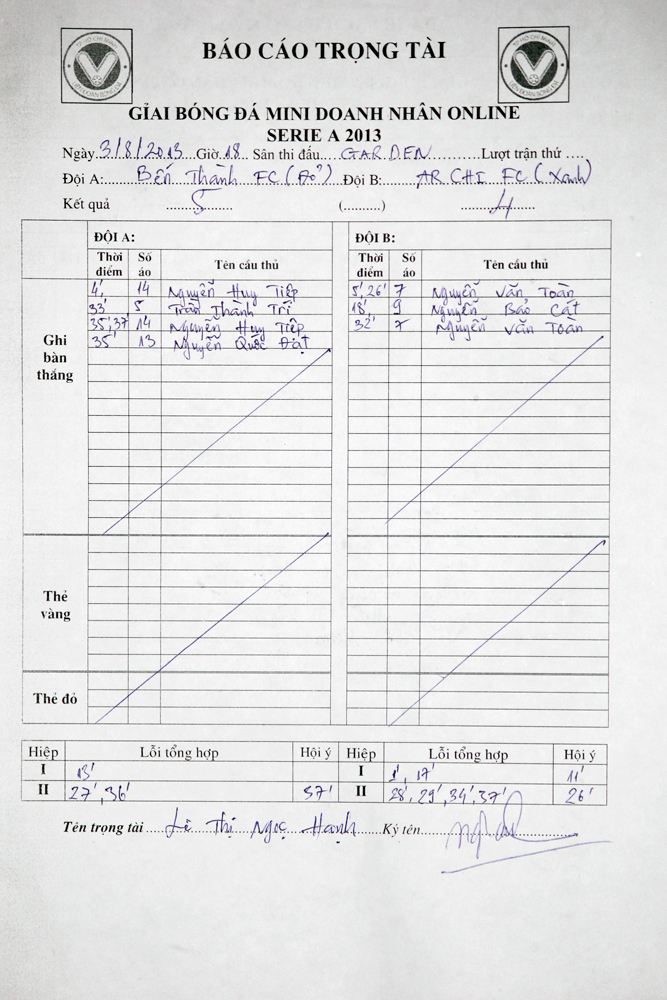 TP HỒ CHÍ MINH
LIÊN ĐOÀN BÓNG ĐÁ
BÁO CÁO TRỌNG TÀI
TP HỒ CHÍ MINH
LIÊN ĐOÀN BÓNG ĐÁ
GIẢI BÓNG ĐÁ MINI DOANH NHÂN ONLINE
SERIE A 2013
Ngày 3/8/2013 Giờ 18 Sân thi đấu GARDEN Lượt trận thứ ....
Đội A: Bến Thành FC (Đỏ) Đội B: ARCHI FC (Xanh)
Kết quả 5 (..........) 4
ĐỘI A: ĐỘI B:
Thời điểm Số áo Tên cầu thủ Thời điểm Số áo Tên cầu thủ
Ghi bàn thắng
4' 14 Nguyễn Huy Tiệp 5', 26' 7 Nguyễn Văn Toàn
33' 5 Trần Thành Trí 18' 9 Nguyễn Bảo Cát
35', 37' 14 Nguyễn Huy Tiệp 32' 7 Nguyễn Văn Toàn
35' 13 Nguyễn Quốc Đạt
Thẻ vàng
Thẻ đỏ
Hiệp Lỗi tổng hợp Hội ý Hiệp Lỗi tổng hợp Hội ý
I 13' I 1', 17' 11'
II 27', 36' 37' II 28', 29', 34', 37' 26'
Tên trọng tài Lê Thị Ngọc Hạnh Ký tên